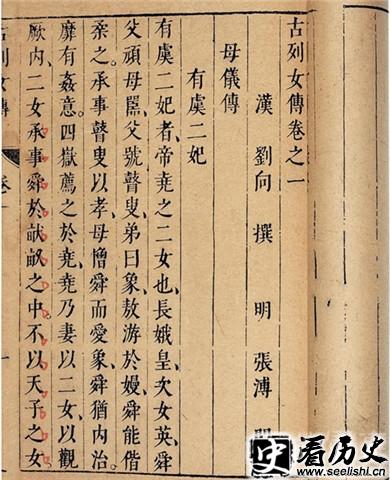 古列女傳卷之一
漢 劉向 撰 明 張溥
母儀傳
有虞二妃
有虞二妃者、帝堯之二女也、長娥皇、次女英、舜
父頑母嚚、父號瞽叟、弟曰象、敖游於嫚、舜能偕
柔之、承事瞽叟以孝、母憎舜而愛象、舜猶內治、
靡有姦意、四嶽薦之於堯、堯乃妻以二女、以觀
厥內、二女承事舜於畎畝之中、不以天子之女
古列女傳 卷一 一
史 看历史
www.seelishi.cn